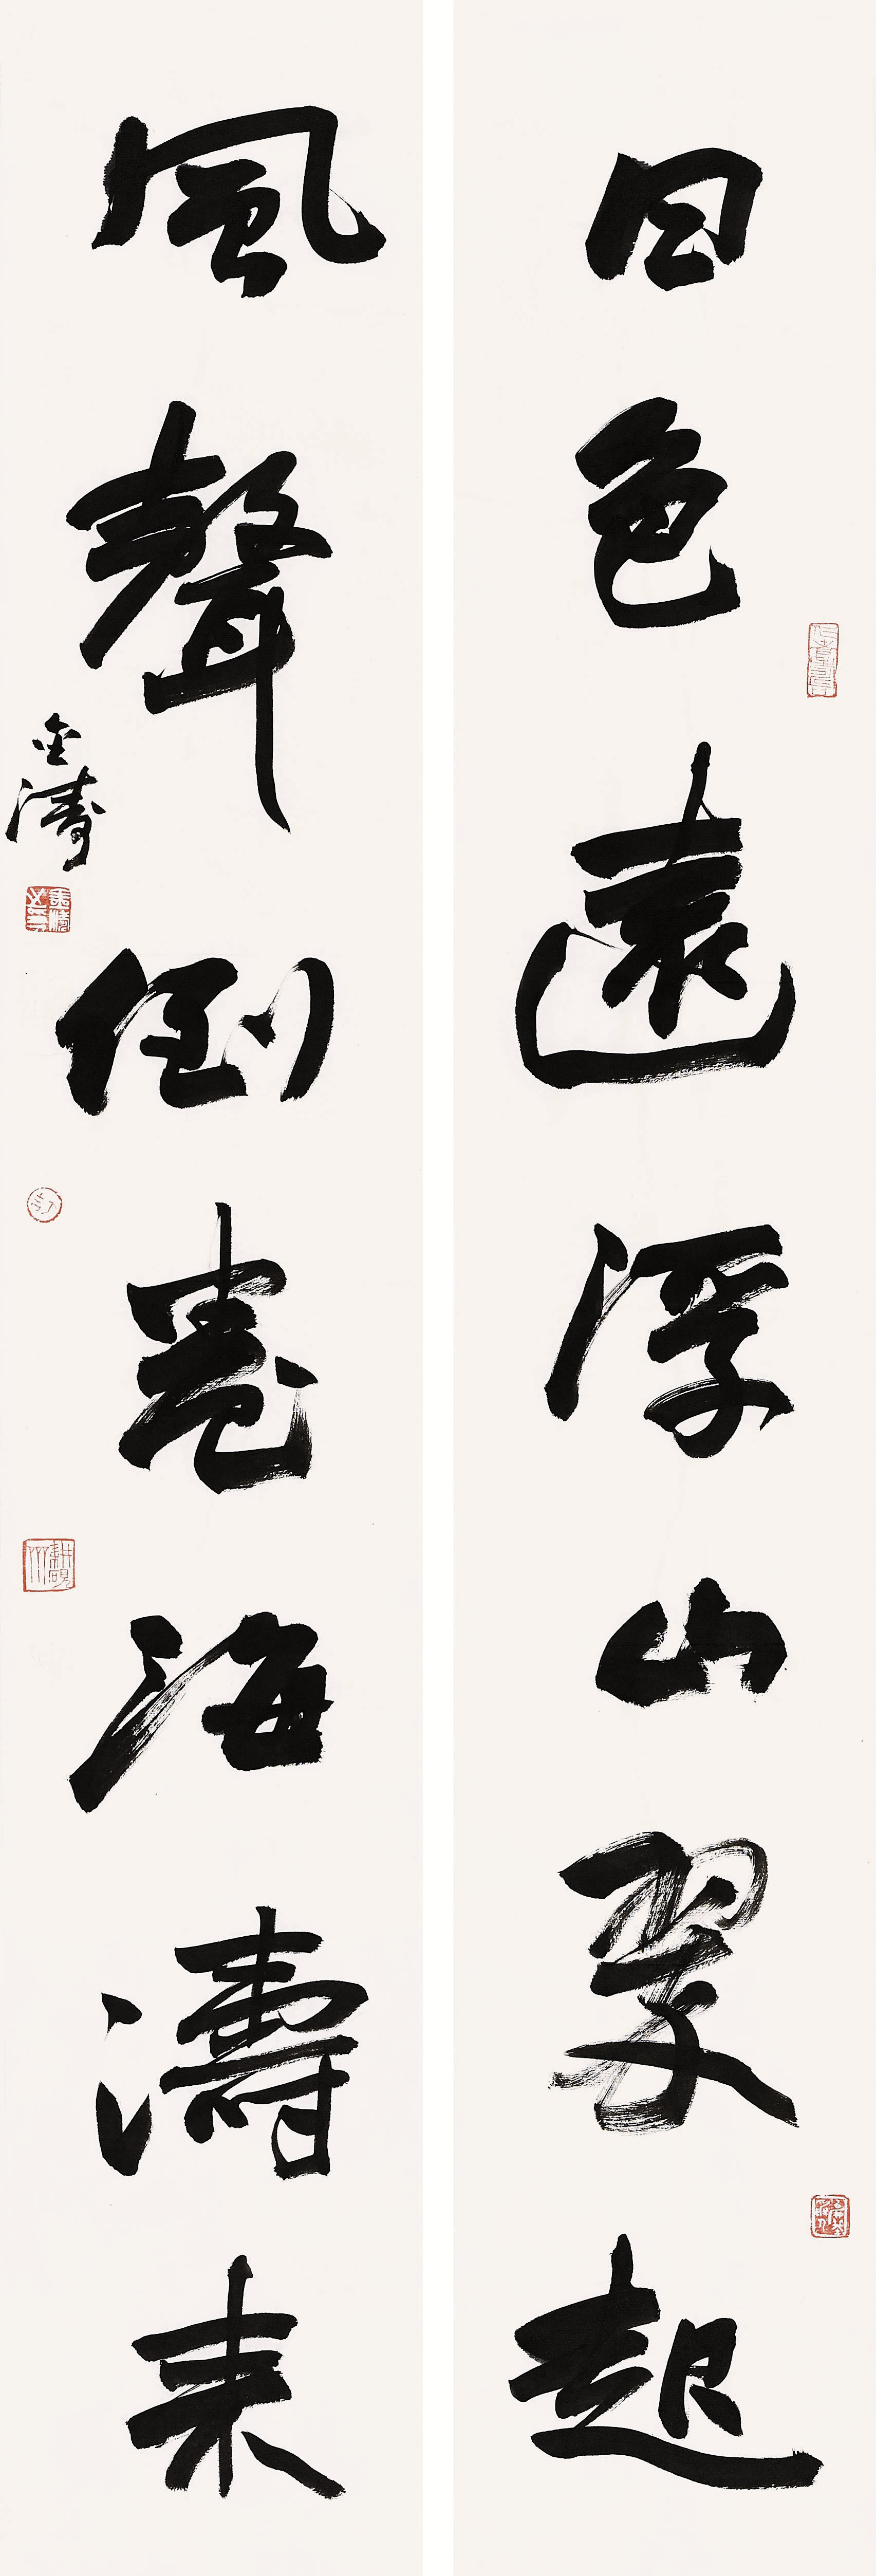 日色遠浮山翠起
風聲倒卷海濤來
金濤